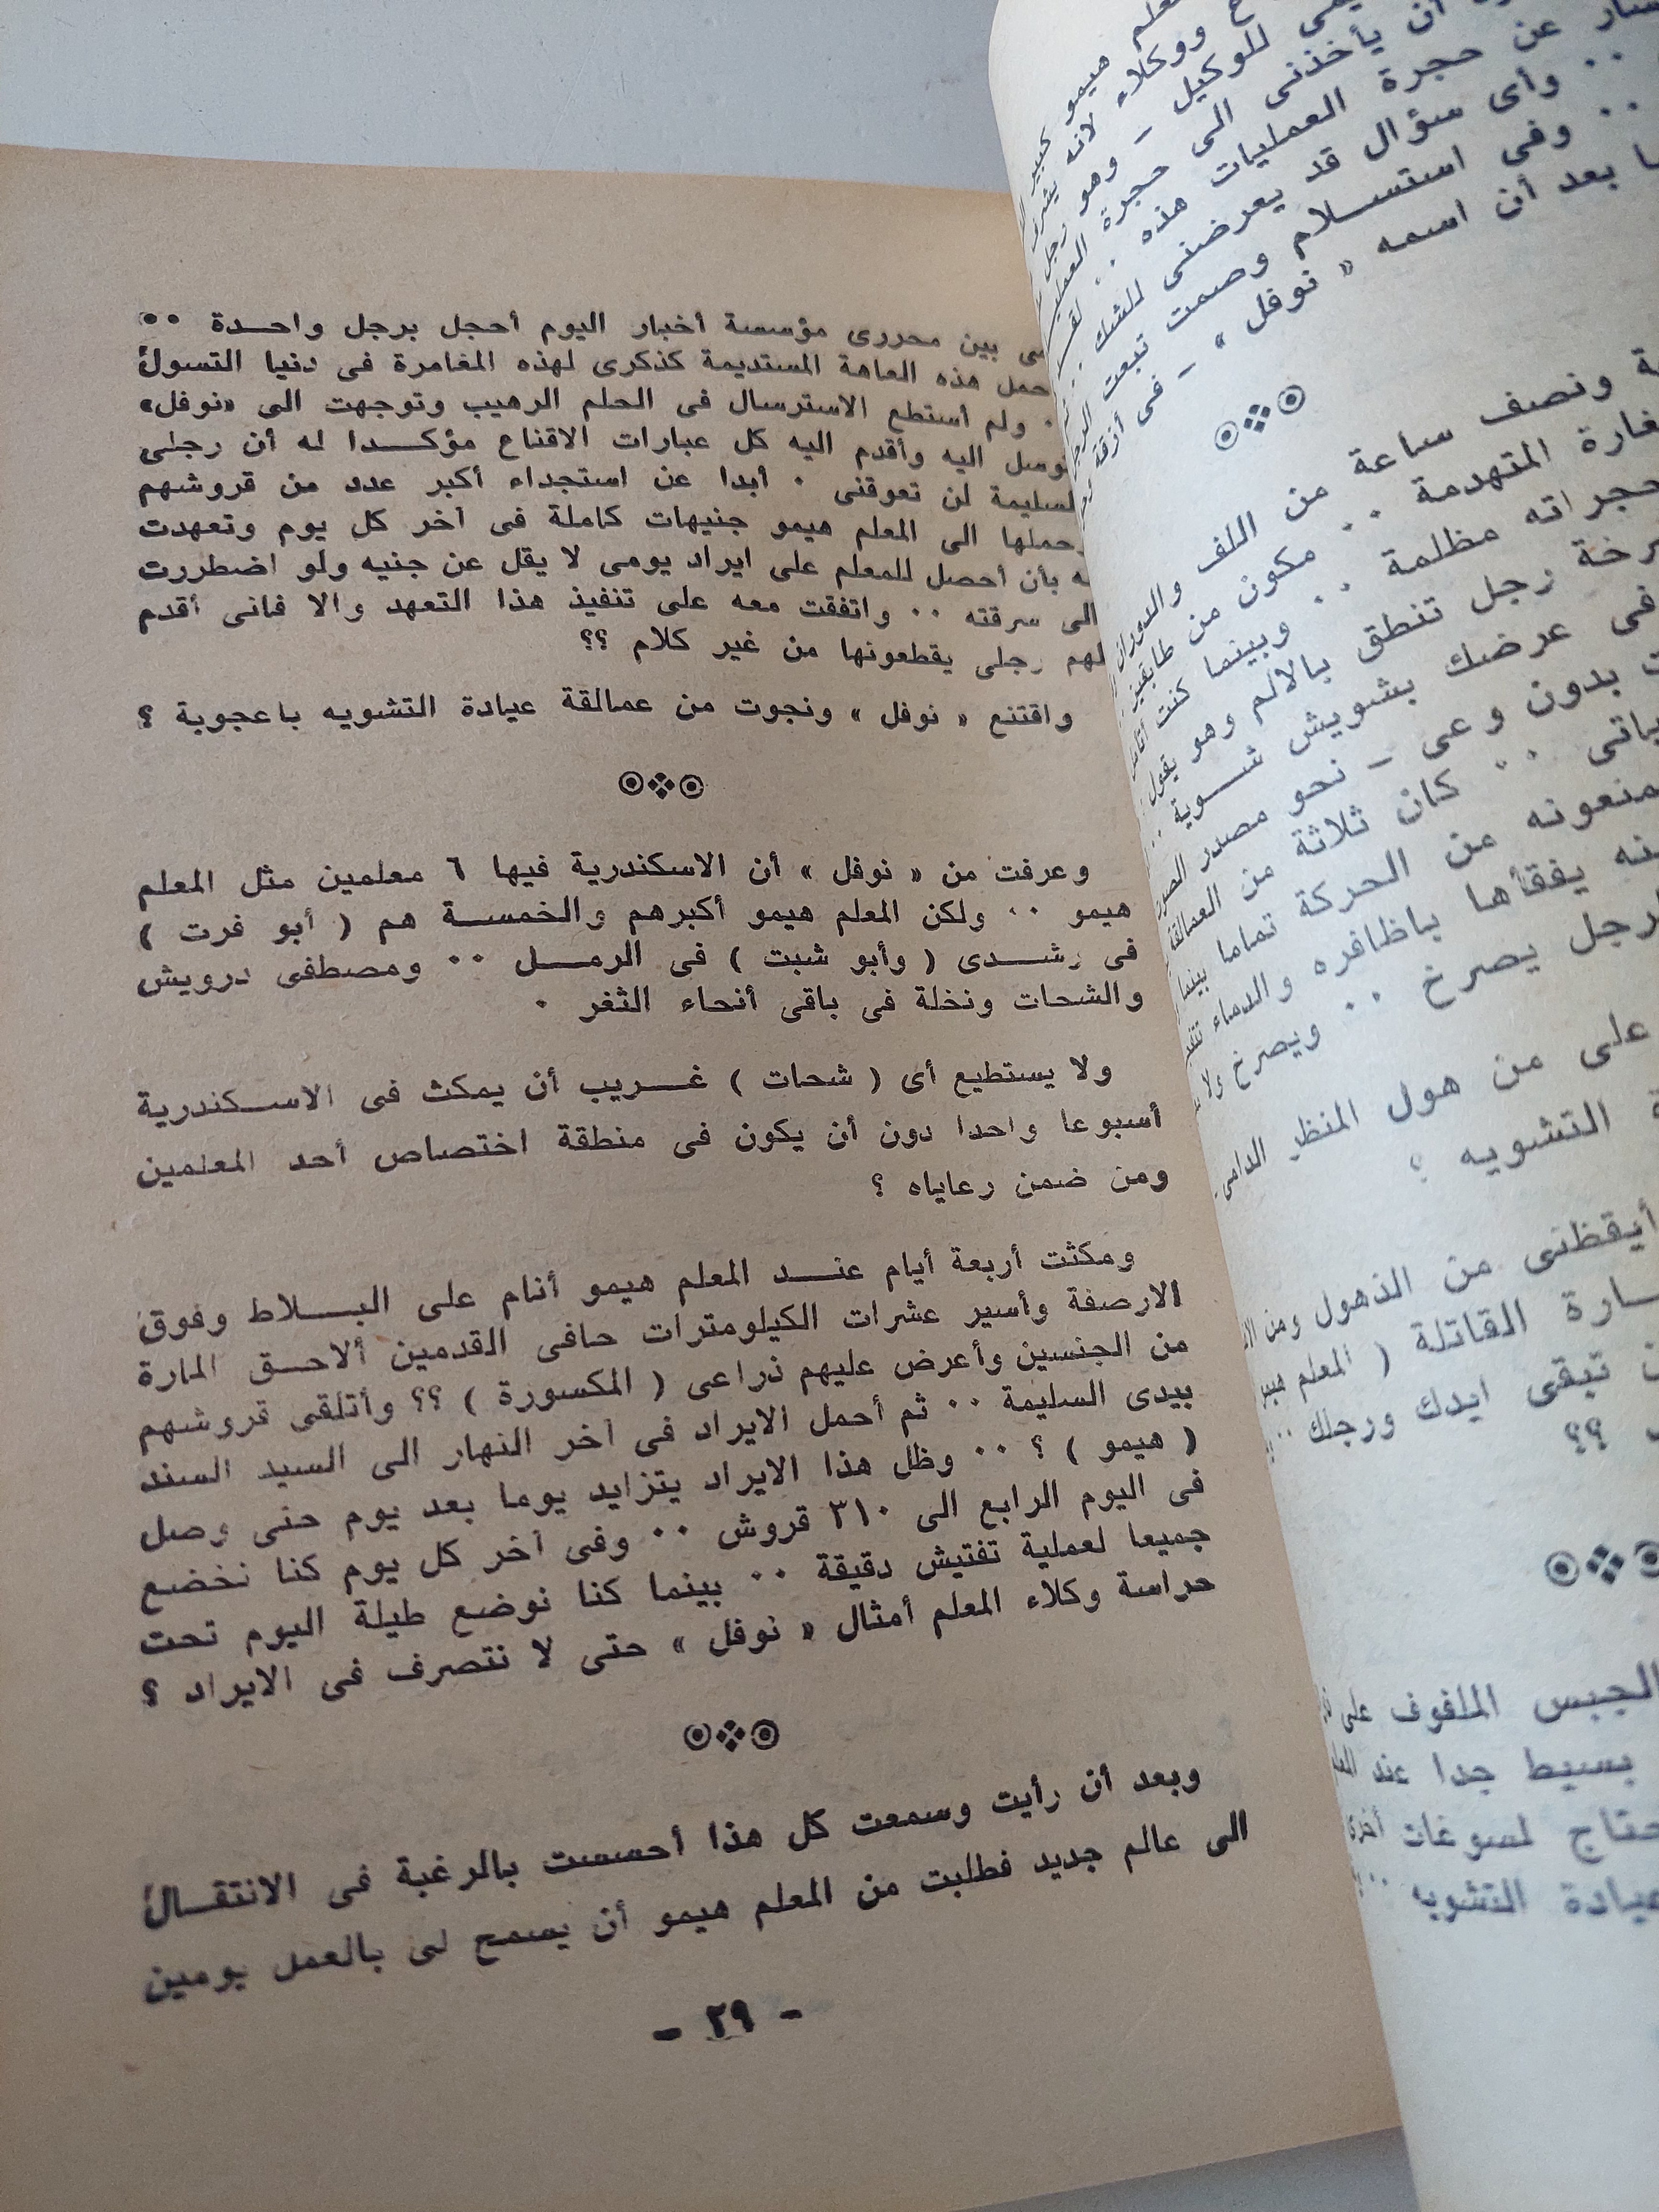 بين محررى مؤسسة أخبار اليوم أحجل برجل واحـدة ٠٠
هذه العاهة المستديمة كذكرى لهذه المغامرة فى دنيا التسول
٠ ولم أستطع الاسترسال فى الحلم الرهيب وتوجهت الى «نوفل»
اليه وأقدم اليه كل عبارات الاقناع مؤكـــدا له أن رجلى
لن تعوقنى ٠ أبدا عن استجداء أكبر عدد من قروشهم
الى المعلم هيمو جنيهات كاملة فى آخر كل يوم وتعهدت
بأن أحصل للمعلم على ايراد يومى لا يقل عن جنيه ولو اضطررت
الى سرقته ٠٠ واتفقت معه على تنفيذ هذا التعهد والا فانى أقدم
لهم رجلى يقطعونها من غير كلام ؟؟
واقتنع « نوفل » ونجوت من عمالقة عيادة التشويه باعجوبة ؟
وعرفت من « نوفل » أن الاسكندرية فيها ٦ معلمين مثل المعلم
هيمو ٠٠ ولكن المعلم هيمو أكبرهم والخمســة هم ( أبو فرت )
فى رشــدى ( وأبو شبت ) فى الرمــل ٠٠ ومصطفى درويش
والشحات ونخلة فى باقى أنحاء الثغر ٠
ولا يستطيع أى ( شحات ) غــريب أن يمكث فى الاسـكندرية
أسبوعا واحدا دون أن يكون فى منطقة اختصاص أحد المعلمين
ومن ضمن رعاياه ؟
ومكثت أربعة أيام عنــد المعلم هيمو أنام على البــلاط وفوق
الارصفة وأسير عشرات الكيلومترات حافى القدمين ألاحـق المارة
من الجنسين وأعرض عليهم ذراعى ( المكسورة ) ؟؟ وأتلقى قروشهم
بيدى السليمة ٠٠ ثم أحمل الايراد فى آخر النهار الى السيد السند
( هيمو ) ؟ ٠٠ وظل هذا الايراد يتزايد يوما بعد يوم حتى وصل
فى اليوم الرابع الى ٣١٠ قروش ٠٠ وفى آخر كل يوم كنا نخضع
جميعا لعملية تفتيش دقيقة ٠٠ بينما كنا نوضع طيلة اليوم تحت
حراسة وكلاء المعلم أمثال « نوفل » حتى لا نتصرف فى الايراد ؟
وبعد أن رأيت وسمعت كل هذا أحسست بالرغبة فى الانتقـال
الى عالم جديد فطلبت من المعلم هيمو أن يسمح لى بالعمل يومين
– ٢٩ –
هيمو كبير
ووكلاء لانه
للوكيل – وهو رجل
أن يأخذنى الى حجرة
عن حجرة العمليات هذه ٠٠
٠٠ وأى سؤال قد يعرضنى للشك ٠٠
٠٠ وفى استسـلام وصمت تبعت
بعد أن اسمه « نوفل » – فى أزقة
ونصف ساعة من اللف والدوران
المتهدمة ٠٠ مكون من طابقين
حجراته مظلمة ٠٠ وبينما كنت
رجل تنطق بالالم وهو يقول
فى عرضك بشويش شــوية ٠٠
بدون وعى – نحو مصدر
٠٠ كان ثلاثة من العمالقة
من الحركة تماما بينما
يفقأها باظافره والدماء
يصرخ ٠٠ ويصرخ ولا
على من هول المنظر الدامى
التشويه ؟
أيقظنى من الذهول ومن
القاتلة ( المعلم
تبقى ايدك ورجلك ٠٠
؟؟
الجبس الملفوف على
بسيط جدا عند
لمسوغات أخرى
عيادة التشويه ٠٠